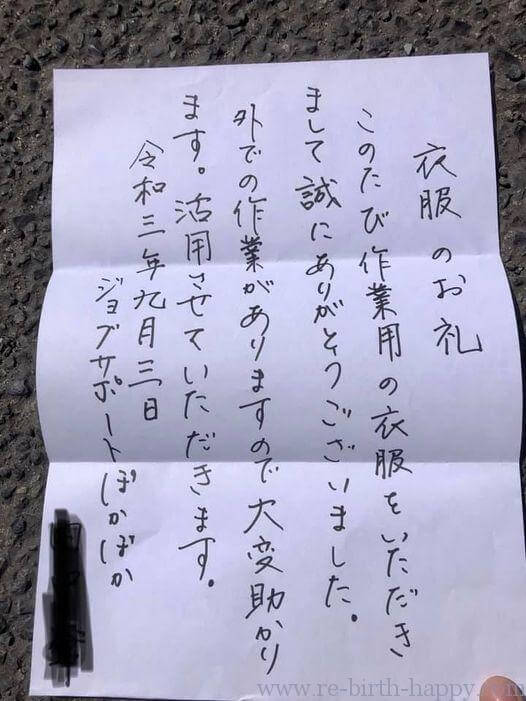 衣服のお礼
このたび作業用の衣服をいただき
まして誠にありがとうございました。
外での作業がありますので大変助かり
ます。活用させていただきます。
令和三年九月三日
ジョブサポートぽかぽか
www.re-birth-happy.com